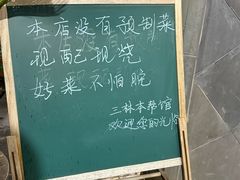 本店没有预制菜
现配现烧
好菜不怕晚
三林本帮馆
欢迎您的光临